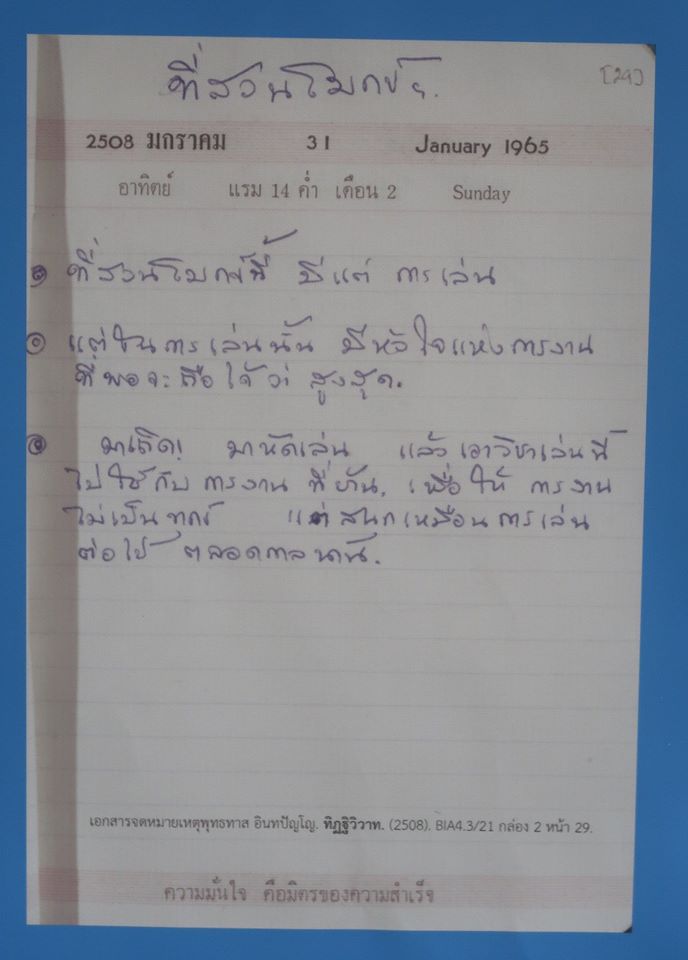 ที่สวนโมกข์ฯ.
[29]
2508 มกราคม 31 January 1965
อาทิตย์ แรม 14 ค่ำ เดือน 2 Sunday
ที่สวนโมกข์นี้ มีแต่ การเล่น
แต่ในการเล่นนั้น มีหัวใจแห่งการงาน
ที่พอจะถือได้ว่า สูงสุด.
มาเถิด! มาหัดเล่น แล้วเอาวิชาเล่นนี้
ไปใช้กับ การงาน ที่บ้าน, เพื่อให้ การงาน
ไม่เป็นทุกข์ แต่สนุกเหมือนการเล่น
ต่อไป ตลอดกาลนาน.
เอกสารจดหมายเหตุพุทธทาส อินทปัญโญ. ทิฏฐิวิวาท. (2508). BIA4.3/21 กล่อง 2 หน้า 29.
ความมั่นใจ คือมิตรของความสำเร็จ